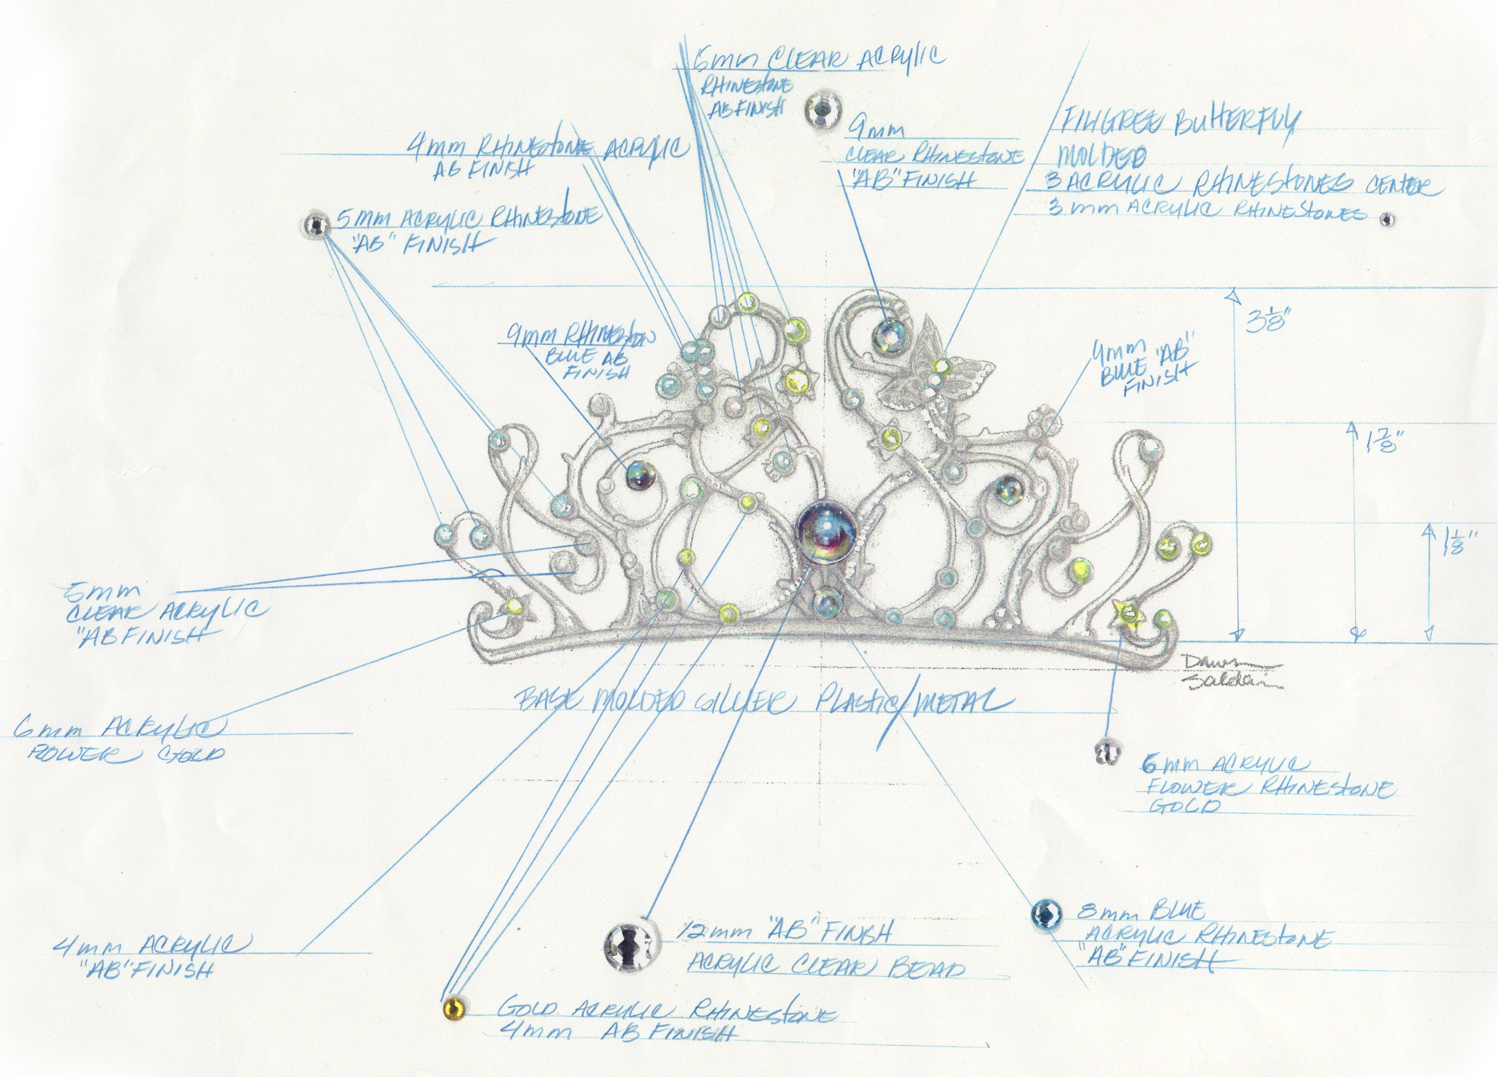 5mm CLEAR ACRYLIC
RHINESTONE
AB FINISH
9mm
CLEAR RHINESTONE
"AB" FINISH
FILIGREE BUTTERFLY
MOLDED
3 ACRYLIC RHINESTONES CENTER
3mm ACRYLIC RHINESTONES
4mm RHINESTONE ACRYLIC
AB FINISH
5mm ACRYLIC RHINESTONE
"AB" FINISH
3⅛"
9mm RHINESTON
BLUE AB
FINISH
9mm "AB"
BLUE
FINISH
1⅞"
1⅛"
5mm
CLEAR ACRYLIC
"AB FINISH
Dawn
BASE MOLDED SILVER PLASTIC/METAL
6mm ACRYLIC
FLOWER GOLD
6mm ACRYLIC
FLOWER RHINESTONE
GOLD
4mm ACRYLIC
"AB" FINISH
12mm "AB" FINISH
ACRYLIC CLEAR BEAD
8mm BLUE
ACRYLIC RHINESTONE
"AB" FINISH
GOLD ACRYLIC RHINESTONE
4mm AB FINISH